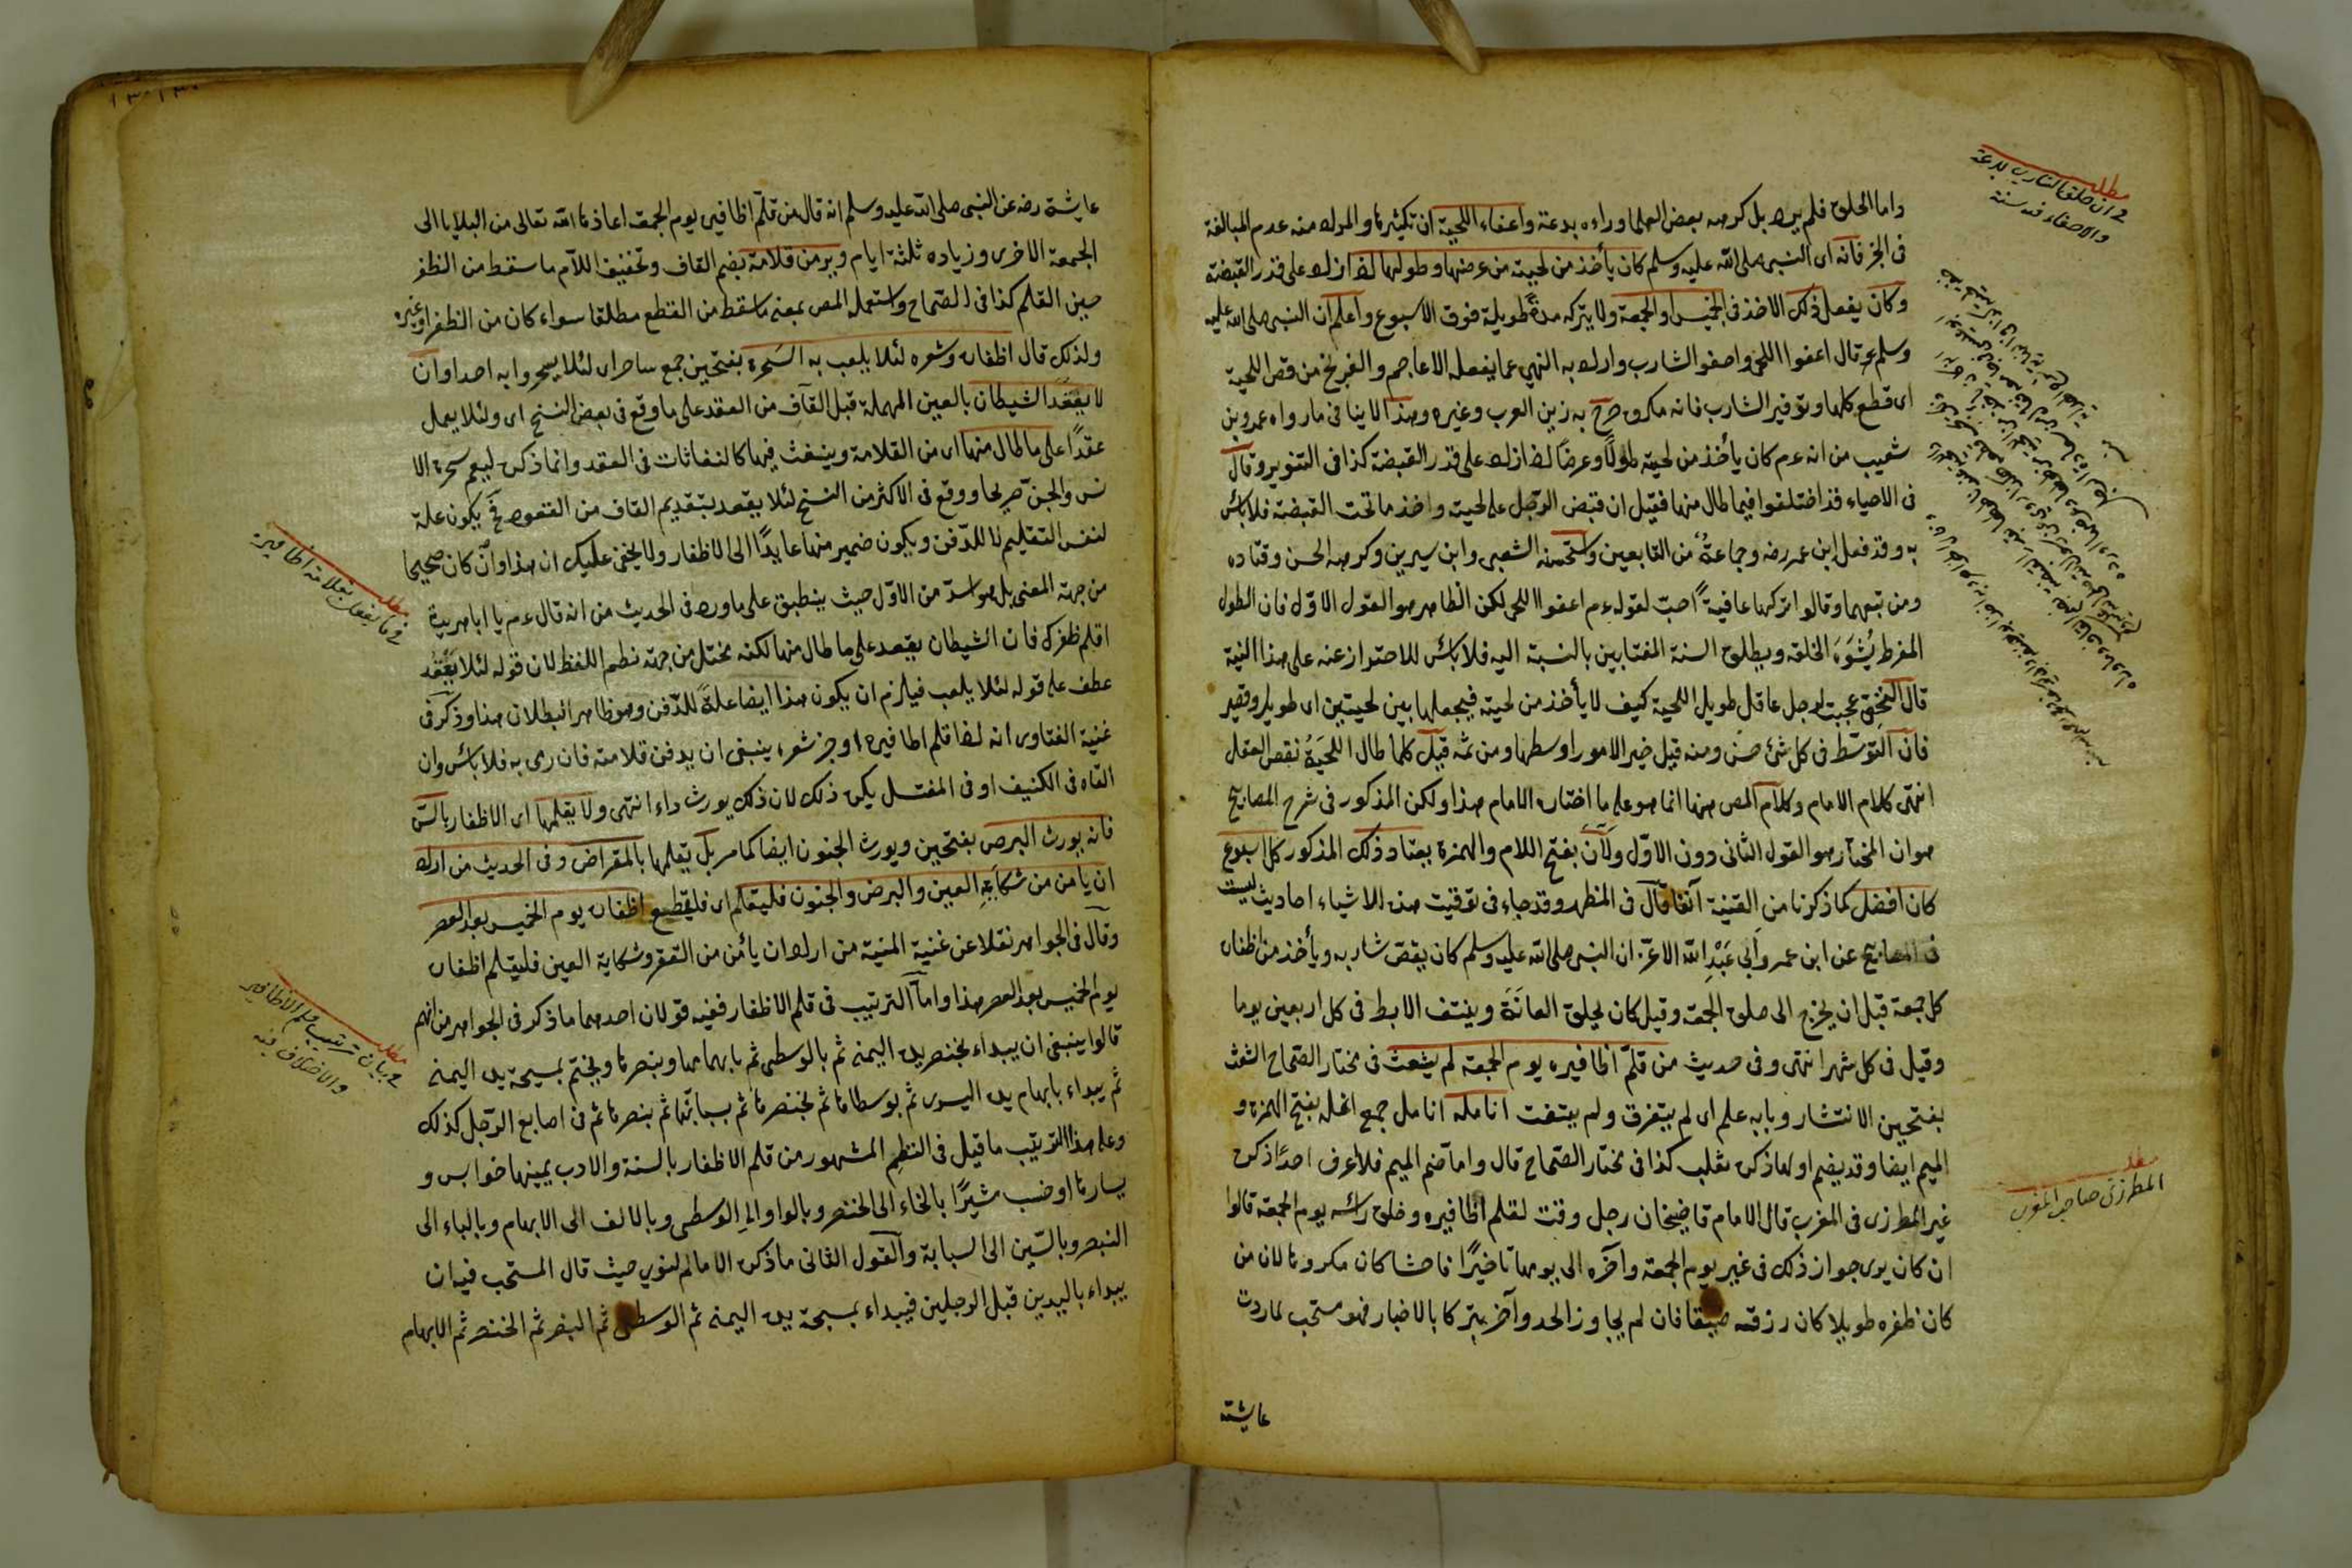 واما الحلق فلم يره بل كرهه بعض العلما وراءه بدعة واعفاء اللحية ان تكثيرها والمراد منه عدم المبالغة
فى الجز فانه اى النبى صلى الله عليه وسلم كان يأخذ من لحيته من عرضها وطولها لضا زاد على قدر القبضة
وكان يفعل ذلك الاخذ فى الخميس او الجمعة ولا يتركه مدة طويلة فوق الاسبوع واعلم ان النبى صلى الله عليه
وسلم قال اعفوا اللحى واحفو الشارب واراد به النهى عما يفعله الاعاجم والفرنج من قص اللحية
اى قطع كلها وتوفير الشارب فانه مكروه صرح به زين العرب وغيره وهذا لا ينافى مارواه عمرو بن
شعيب من انه عم كان يأخذ من لحيته طولًا وعرضًا لضا زاد على قدر القبضة كذا فى التنوير وقال
فى الاحياء قد اختلفوا فيما طال منها فقيل ان قبض الرجل على لحيته واخذ ما تحت القبضة فلا بائس
به وقد فعل ابن عمر رضه وجماعة من التابعين واستحسنه الشعبى وابن سيرين وكرهه الحسن وقتاده
ومن تبعهما وقالوا تركها عافية احب لقوله عم اعفوا اللحى لكن الظاهر هو القول الاول فان الطول
المفرط يشوه الخلقه ويطلق السنة المغتابين بالنسبة اليه فلا بائس للاحتراز عنه على هذا النية
قال النخعى عجبت لرجل عاقل طويل اللحية كيف لا يأخذ من لحيته فيجعلها بين لحيتين اى طويل وقصير
فان التوسط فى كل شئ حسن ومنه قيل خير الامور اوسطها ومن ثمه قيل كلما طال اللحية نقص العقل
انتهى كلام الامام وكلام المص ههنا انما هو على ما اختاره الامام هذا ولكن المذكور فى شرح المصابيح
هوان المختار هو القول الثانى دون الاول ولان بفتح اللام والهمزة يعتاد ذلك المذكور كل اسبوع
كان افضل كما ذكرنا من القنية آنفا قال فى المظهر وقد جاء فى توقيت هذه الاشياء احاديث ليست
فى المصابيح عن ابن عمر وابى عبد الله الاغر ان النبى صلى الله عليه وسلم كان يقص شاربه ويأخذ من اظفاره
كل جمعة قبل ان يخرج الى صلوة الجمعة وقيل كان يحلق العانة وينتف الابط فى كل اربعين يوما
وقيل فى كل شهر انتهى وفى حديث من قلم اظافيره يوم الجمعة لم يشعث فى مختار الصحاح الشعث
بفتحين الانتشار وبابه علم اى لم يتفرق ولم يتفتت انامله انامل جمع انملة بفتح الهمزة و
الميم ايضا وقد يضم اولها ذكره ثعلب كذا فى مختار الصحاح قال واما ضم الميم فلا اعرف احدًا ذكره
غير المطرزى فى المغرب قال الامام قاضيخان رجل وقت لقلم اظافيره وحلق رأسه يوم الجمعة قالوا
ان كان يرى جواز ذلك فى غير يوم الجمعة وأخره الى يومها تاخيرًا فاحشا كان مكروها لان من
كان ظفره طويلا كان رزقه ضيقا فان لم يجاوز الحد وأخر تبركا بالاخبار فهو مستحب لما روت
عايشة
مطلب
فى ان حلق الشارب بدعة
والاحفاء فيه سنة
مطلب
المطرزى صاحب المغرب
عايشة رضه عن النبى صلى الله عليه وسلم انه قال من قلم اظافيره يوم الجمعة اعاذه الله تعالى من البلايا الى
الجمعة الاخرى وزياده ثلثة ايام ويدفن قلامة بضم القاف وتخفيف اللام ما سقط من الظفر
حين القلم كذا فى الصحاح واستعمله المص بمعنى ما سقط من القطع مطلقا سواء كان من الظفر او غيره
ولذلك قال اظفاره وشعره لئلا يلعب به السحرة بفتحين جمع ساحر اى لئلا يسحروا به احدا وان
لا يعقد الشيطان بالعين المهملة قبل القاف من العقد على ما وقع فى بعض النسخ اى ولئلا يعمل
عقدًا على ما طال منها اى من القلامة وينفث فيها كالنفاثات فى العقد وانما ذكره ليعم سحرة الا
نس والجن صريحا ووقع فى الاكثر من النسخ لئلا يقعد بتقديم القاف من القعود فح يكون علة
لنفس التقليم لا للدفن ويكون ضمير منها عايدًا الى الاظفار ولا يخفى عليك ان هذا وان كان صحيحا
من جهة المعنى بل هو اسد من الاول حيث ينطبق على ماورد فى الحديث من انه قال عم يا ابا هريرة
اقلم ظفرك فان الشيطان يقعد على ما طال منها لكنه مختل من جهة نظم اللفظ لان قوله لئلا يقعد
عطف على قوله لئلا يلعب فيلزم ان يكون هذا ايضا علة للدفن وهو ظاهر البطلان هذا وذكر فى
غنية الفتاوى انه لضا قلم اظافيره او جز شعره ينبغى ان يدفن قلامته فان رمى به فلا بائس وان
القاه فى الكنيف او فى المغتسل يكره ذلك لان ذلك يورث داء انتهى ولا يقلمها اى الاظفار بالسن
فانه يورث البرص بفتحين ويورث الجنون ايضا كما مر بل يقلمها بالمقراض وفى الحديث من اراد
ان يامن من شكاية العين والبرص والجنون فليقلم اى فليقطع اظفاره يوم الخميس بعد العصر
وقال فى الجواهر نقلا عن غنية المنية من اراد ان يأمن من الفقر وشكاية العين فليقلم اظفاره
يوم الخميس بعد العصر هذا واما الترتيب فى قلم الاظفار ففيه قولان احدهما ما ذكر فى الجواهر من انهم
قالوا ينبغى ان يبداء بخنصر يده اليمنى ثم بالوسطى ثم بابهامها وبنصرها ويختم بمسبحة يده اليمنى
ثم يبداء بابهام يده اليسرى ثم بوسطاها ثم بخنصرها ثم بسبابتها ثم بنصرها ثم فى اصابع الرجل كذلك
وعلى هذا الترتيب ما قيل فى النظم المشهور من قلم الاظفار بالسنة والادب يمينها خوابس و
يسارها اوخسب مشيرًا بالخاء الى الخنصر وبالواو الى الوسطى وبالالف الى الابهام وبالباء الى
البنصر وبالسين الى السبابة والقول الثانى ما ذكره الامام النووى حيث قال المستحب فيه ان
يبداء باليدين قبل الرجلين فيبداء بمسبحة يده اليمنى ثم الوسطى ثم البنصر ثم الخنصر ثم الابهام
مطلب
فى ما يفعل بقلامة اظافيره
مطلب
فى بيان ترتيب قلم الاظافير
والاختلاف فيه